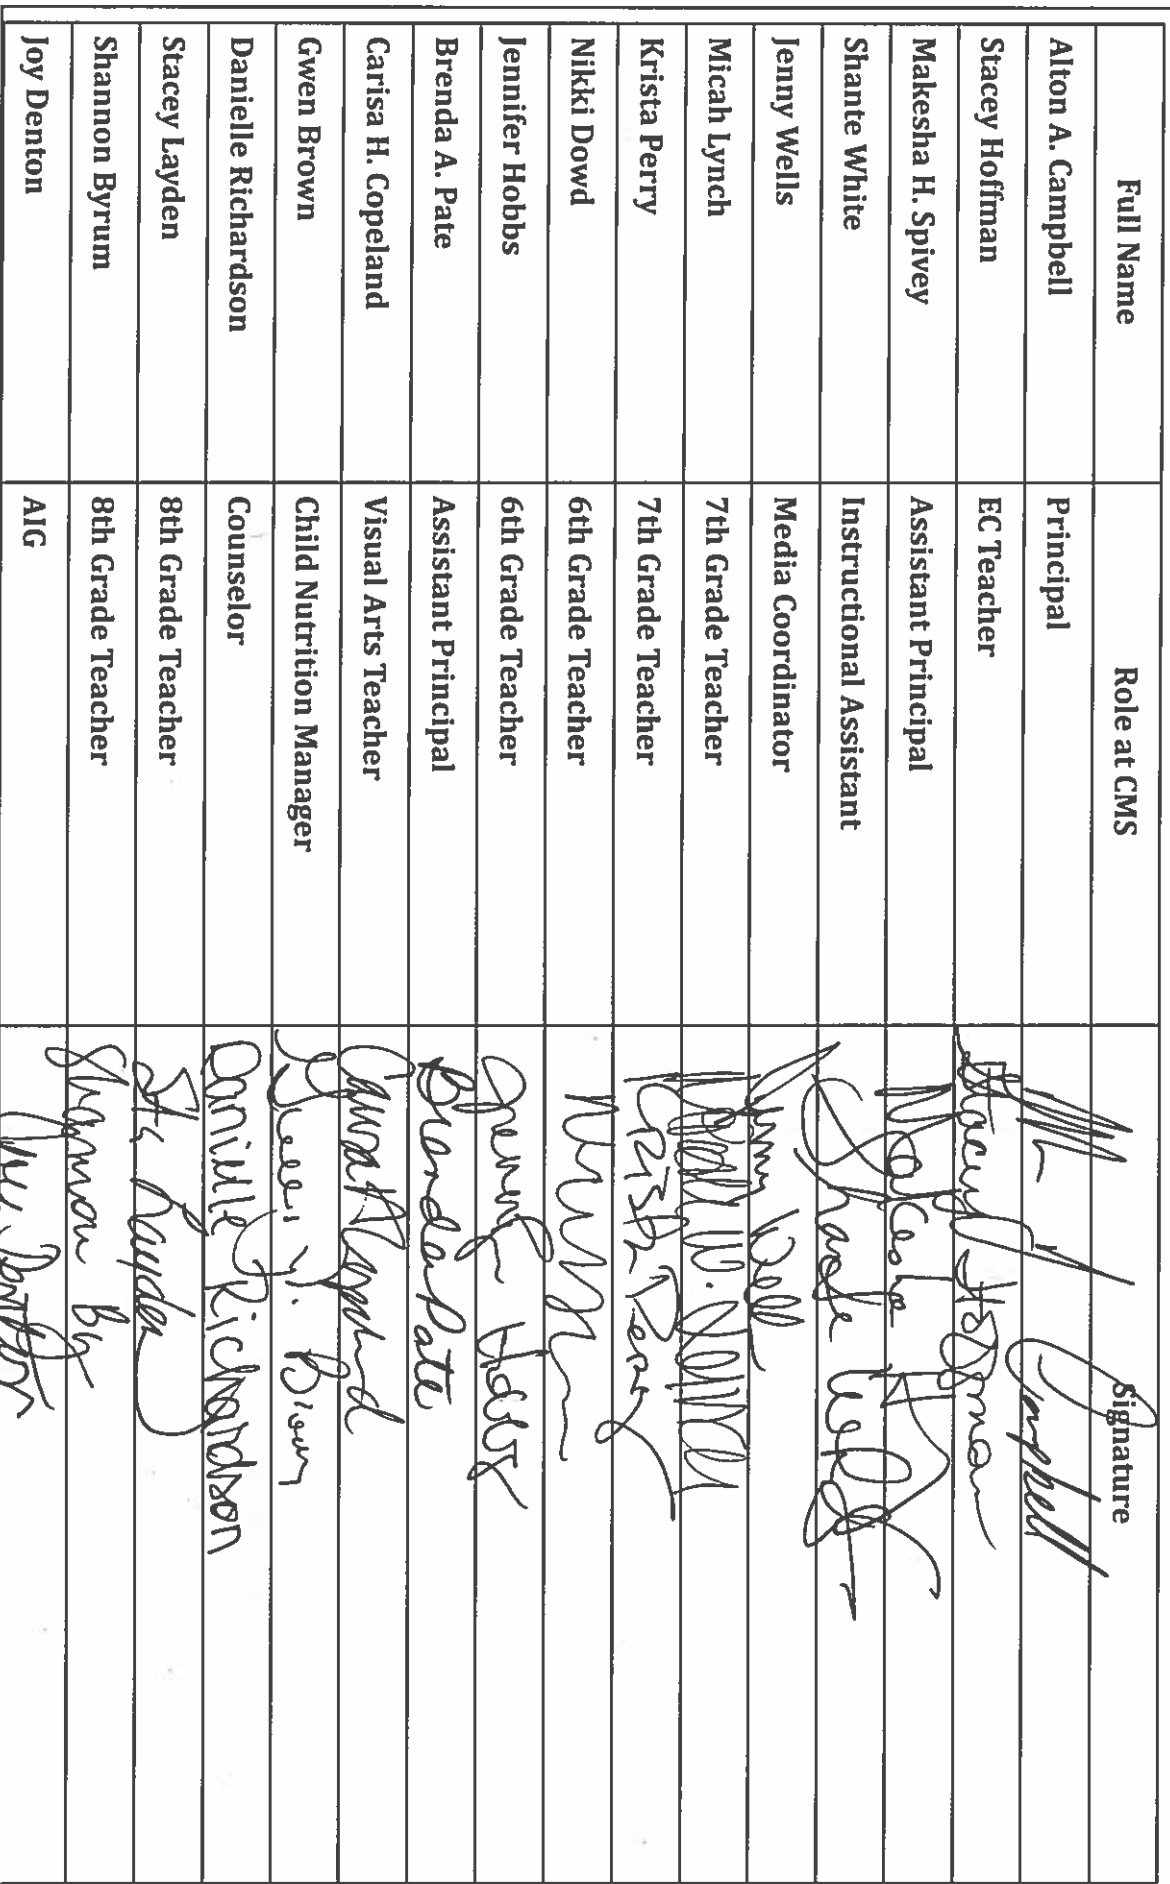 Full Name Role at CMS Signature
Alton A. Campbell Principal Campbell
Stacey Hoffman EC Teacher Stacey Hoffman
Makesha H. Spivey Assistant Principal Makesha
Shante White Instructional Assistant Shante White
Jenny Wells Media Coordinator Jenny Wells
Micah Lynch 7th Grade Teacher
Krista Perry 7th Grade Teacher Krista Perry
Nikki Dowd 6th Grade Teacher
Jennifer Hobbs 6th Grade Teacher Jennifer Hobbs
Brenda A. Pate Assistant Principal Brenda Pate
Carisa H. Copeland Visual Arts Teacher Carisa H Copeland
Gwen Brown Child Nutrition Manager Brown
Danielle Richardson Counselor Danielle Richardson
Stacey Layden 8th Grade Teacher Layden
Shannon Byrum 8th Grade Teacher Shannon
Joy Denton AIG